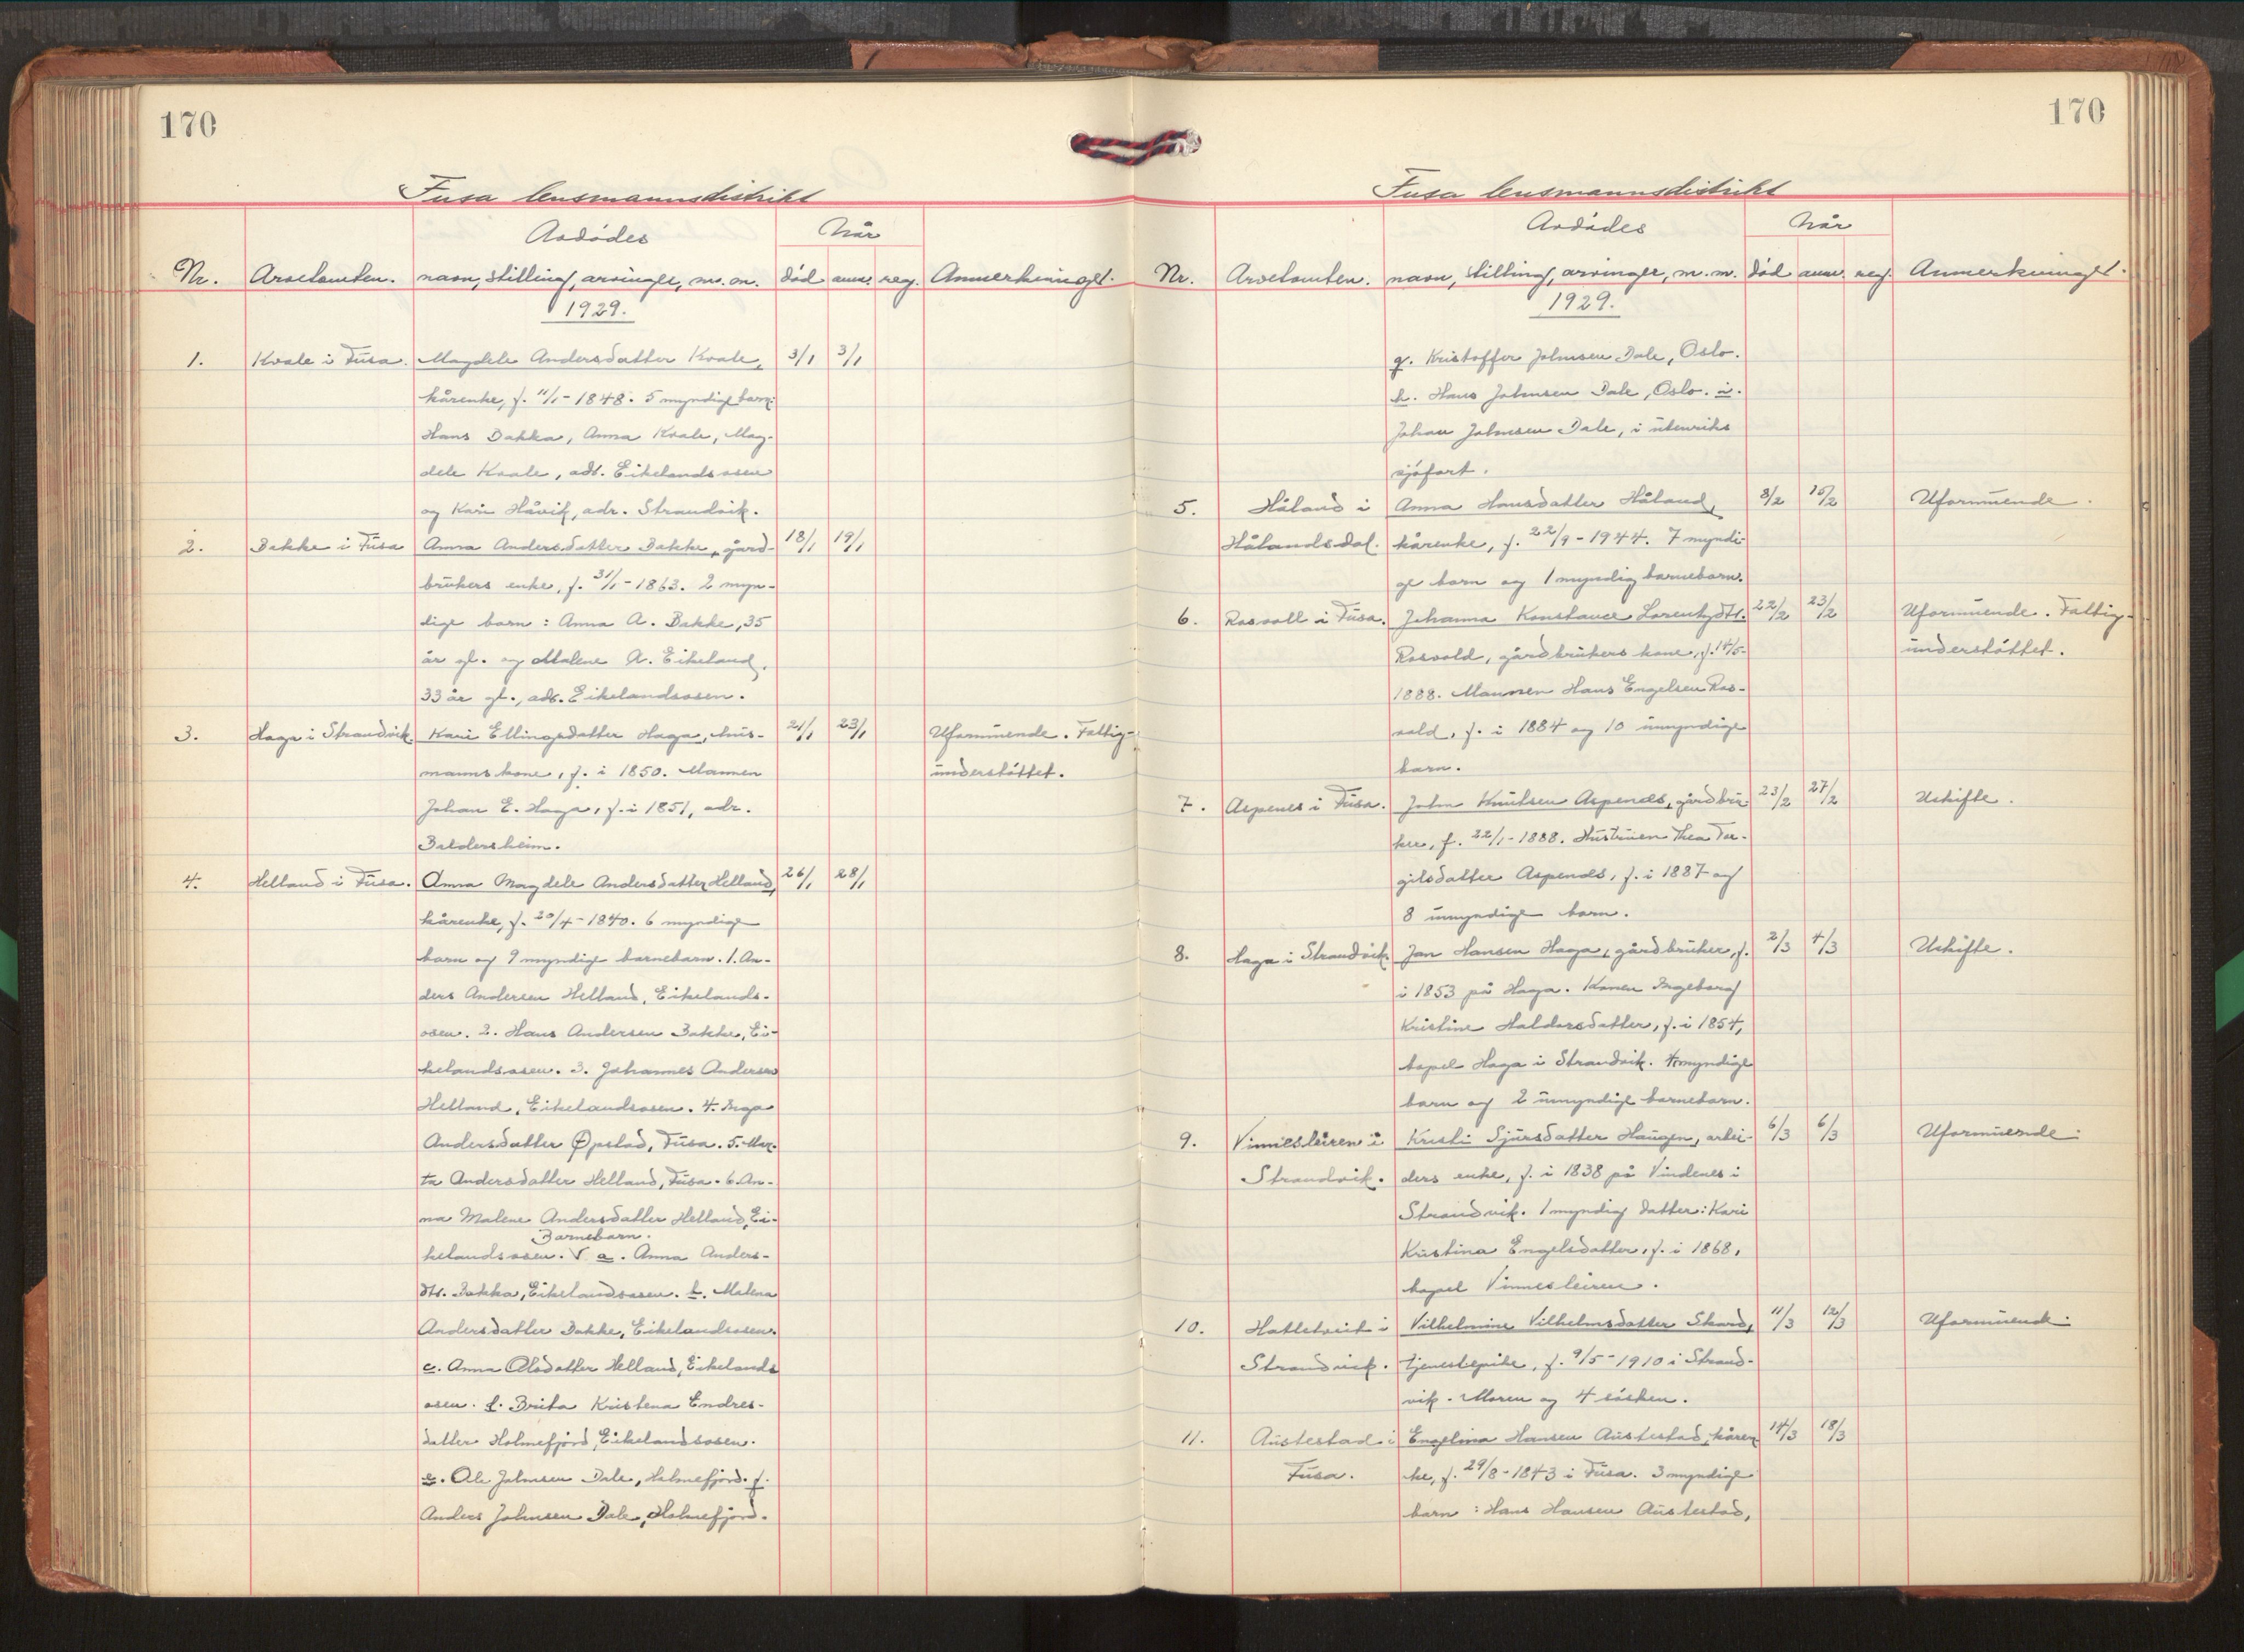 170
Fusa lensmannsdistrikt
Avdødes
Når
Nr. Arvetomten. navn, stilling, arvinger, m.m. død anm. reg. Anmerkninger.
1929.
1. Kvale i Fusa. Magdele Andersdatter Kvale, 3/1 3/1
kårenke, f. 11/1-1848. 5 myndige barn:
Hans Bakka, Anna Kvale, Mag-
dele Kvale, adr. Eikelandsosen
og Kari Håvik, adr. Strandvik.
2. Bakke i Fusa Anna Andersdatter Bakke, gård- 18/1 19/1
brukers enke, f. 31/1-1863. 2 myn-
dige barn: Anna A. Bakke, 35
år gl. og Malene A. Eikeland,
33 år gl., adr. Eikelandsosen.
3. Haga i Strandvik. Kari Ellingsdatter Haga, hus- 21/1 23/1 Uformuende. Fattig-
manns kone, f. i 1850. Mannen understøttet.
Johan E. Haga, f. i 1851, adr.
Baldersheim.
4. Helland i Fusa. Anna Magdele Andersdatter Helland, 26/1 28/1
kårenke, f. 20/4-1840. 6 myndige
barn og 9 myndige barnebarn. 1. An-
ders Andersen Helland, Eikelands-
osen. 2. Hans Andersen Bakke, Ei-
kelandsosen. 3. Johannes Andersen
Helland, Eikelandsosen. 4. Inga
Andersdatter Øpstad, Fusa. 5. Mar-
ta Andersdatter Helland, Fusa. 6. An-
na Malene Andersdatter Helland, Ei-
Barnebarn.
kelandsosen. V a. Anna Anders-
dtr. Bakka, Eikelandsosen. b. Malena
Andersdatter Bakke, Eikelandsosen.
c. Anna Olsdatter Helland, Eikelands
osen. d. Brita Kristena Endres-
datter Holmefjord, Eikelandsosen.
e. Ole Johnsen Dale, Holmefjord. f.
Anders Johnsen Dale, Holmefjord.
170
Fusa lensmannsdistrikt
Avdødes
Når
Nr. Arvetomten. navn, stilling, arvinger, m.m. død anm. reg. Anmerkninger.
1929.
g. Kristoffer Johnsen Dale, Oslo.
h. Hans Johnsen Dale, Oslo. i.
Johan Johnsen Dale, i utenriks
sjøfart.
5. Håland i Anna Hansdatter Håland, 8/2 15/2 Uformuende.
Hålandsdal. kårenke, f. 22/9-1944. 7 myndi-
ge barn og 1 myndig barnebarn.
6. Rosvoll i Fusa. Johanna Konstance Lorentzdtr. 22/2 23/2 Uformuende. Fattig-
Rosvold, gårdbrukers kone, f. 14/5- understøttet.
1888. Mannen Hans Engelsen Ros-
vold, f. i 1884 og 10 umyndige
barn.
7. Aspenes i Fusa. John Knutsen Aspenes, gårdbru- 23/2 27/2 Uskifte.
ker, f. 22/1-1888. Hustruen Thea Tor-
gilsdatter Aspenes, f. i 1887 og
8 umyndige barn.
8. Haga i Strandvik Jan Hansen Haga, gårdbruker, f. 2/3 4/3 Uskifte.
i 1853 på Haga. Konen Ingeborg
Kristine Haldorsdatter, f. i 1854,
bopel Haga i Strandvik. 4 myndige
barn og 2 umyndige barnebarn.
9. Vinnesleiren i Kristi Sjursdatter Haugen, arbei- 6/3 6/3 Uformuende.
Strandvik. ders enke, f. i 1838 på Vindenes i
Strandvik. 1 myndig datter: Kari
Kristina Engelsdatter, f. i 1868,
bopel Vinnesleiren.
10. Hatletveit i Vilhelmine Vilhelmsdatter Skard, 11/3 12/3 Uformuende.
Strandvik. tjenestepike, f. 9/5-1910 i Strand-
vik. Moren og 4 søsken.
11. Austestad i Engelina Hansen Austestad, kåren- 14/3 18/3
Fusa. ke, f. 29/8-1843 i Fusa. 3 myndige
barn: Hans Hansen Austestad,